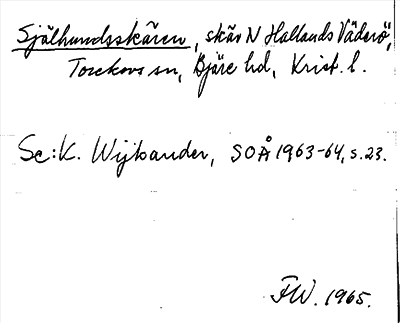 Själhundsskären, skär N Hallands Väderö,
Torekovs sn, Bjäre hd, Krist. l.
Se: K. Wijkander, SOÅ 1963-64, s. 23.
FW. 1965.